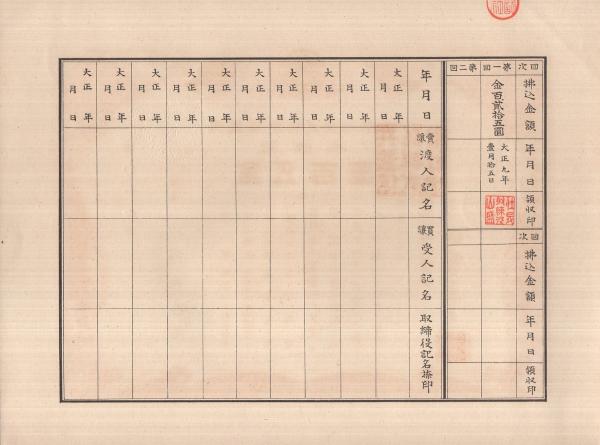 回次
拂込金額
年月日
領収印
第一回
金百貳拾五圓
大正九年
壹月拾五日
第二回
回次
拂込金額
年月日
領収印
年月日
賣讓渡人記名
買讓受人記名
取締役記名捺印
大正年
月日
大正年
月日
大正年
月日
大正年
月日
大正年
月日
大正年
月日
大正年
月日
大正年
月日
大正年
月日
大正年
月日